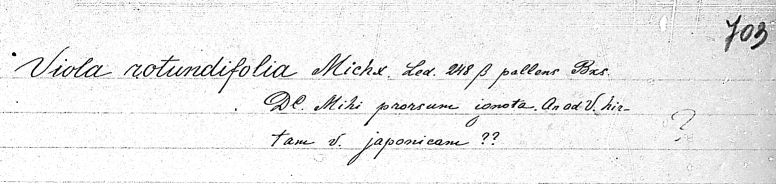 703
Viola rotundifolia Michx. Led. 248 β pallens Bns.
DC. Mihi prorsum ignota. An ad V. hir-
tam v. japonicam ??
?